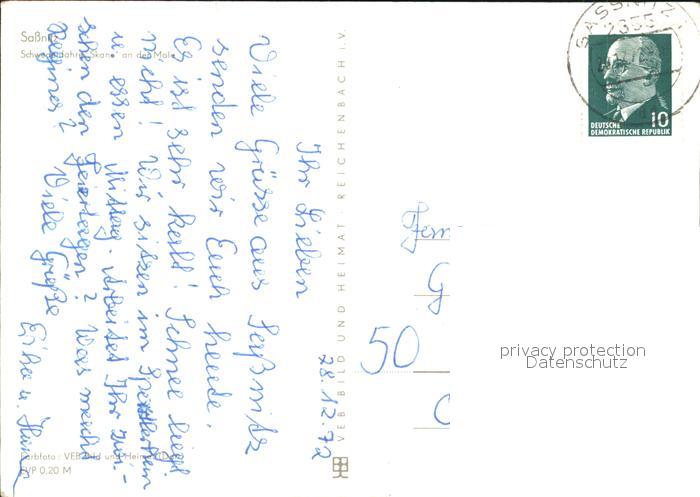 Saßnitz
Schwedenfähre "Skåne" an der Mole
28.12.72
Ihr Lieben
Viele Grüsse aus Saßnitz
senden wir Euch heute.
Es ist sehr kalt! Schnee liegt
nicht! Wir sitzen im
u. essen Mittag. Arbeitet Ihr zwi-
schen den Feiertagen? Was macht
Viele Grüße
Erika u.
Farbfoto: VEB Bild und Heimat
EVP 0,20 M
VEB BILD UND HEIMAT · REICHENBACH i. V.
SASSNITZ 1
2355
10
DEUTSCHE
DEMOKRATISCHE REPUBLIK
Fam
G
50
privacy protection
Datenschutz